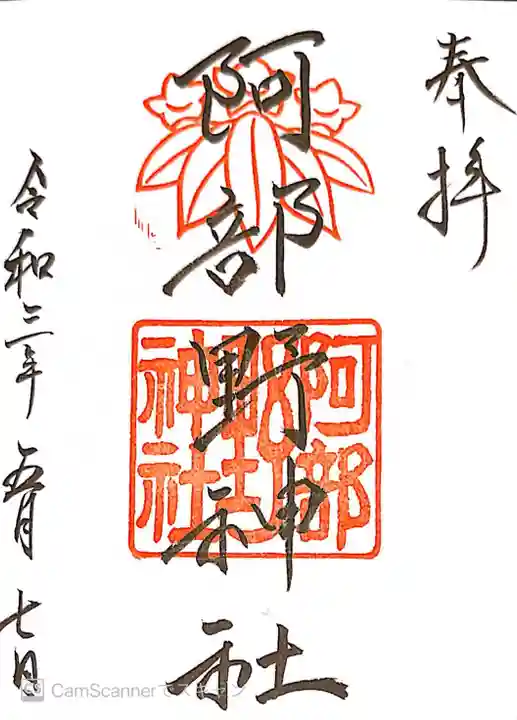 奉拝
阿部野神社
阿部野神社
令和三年五月七日
CamScannerでスキャン